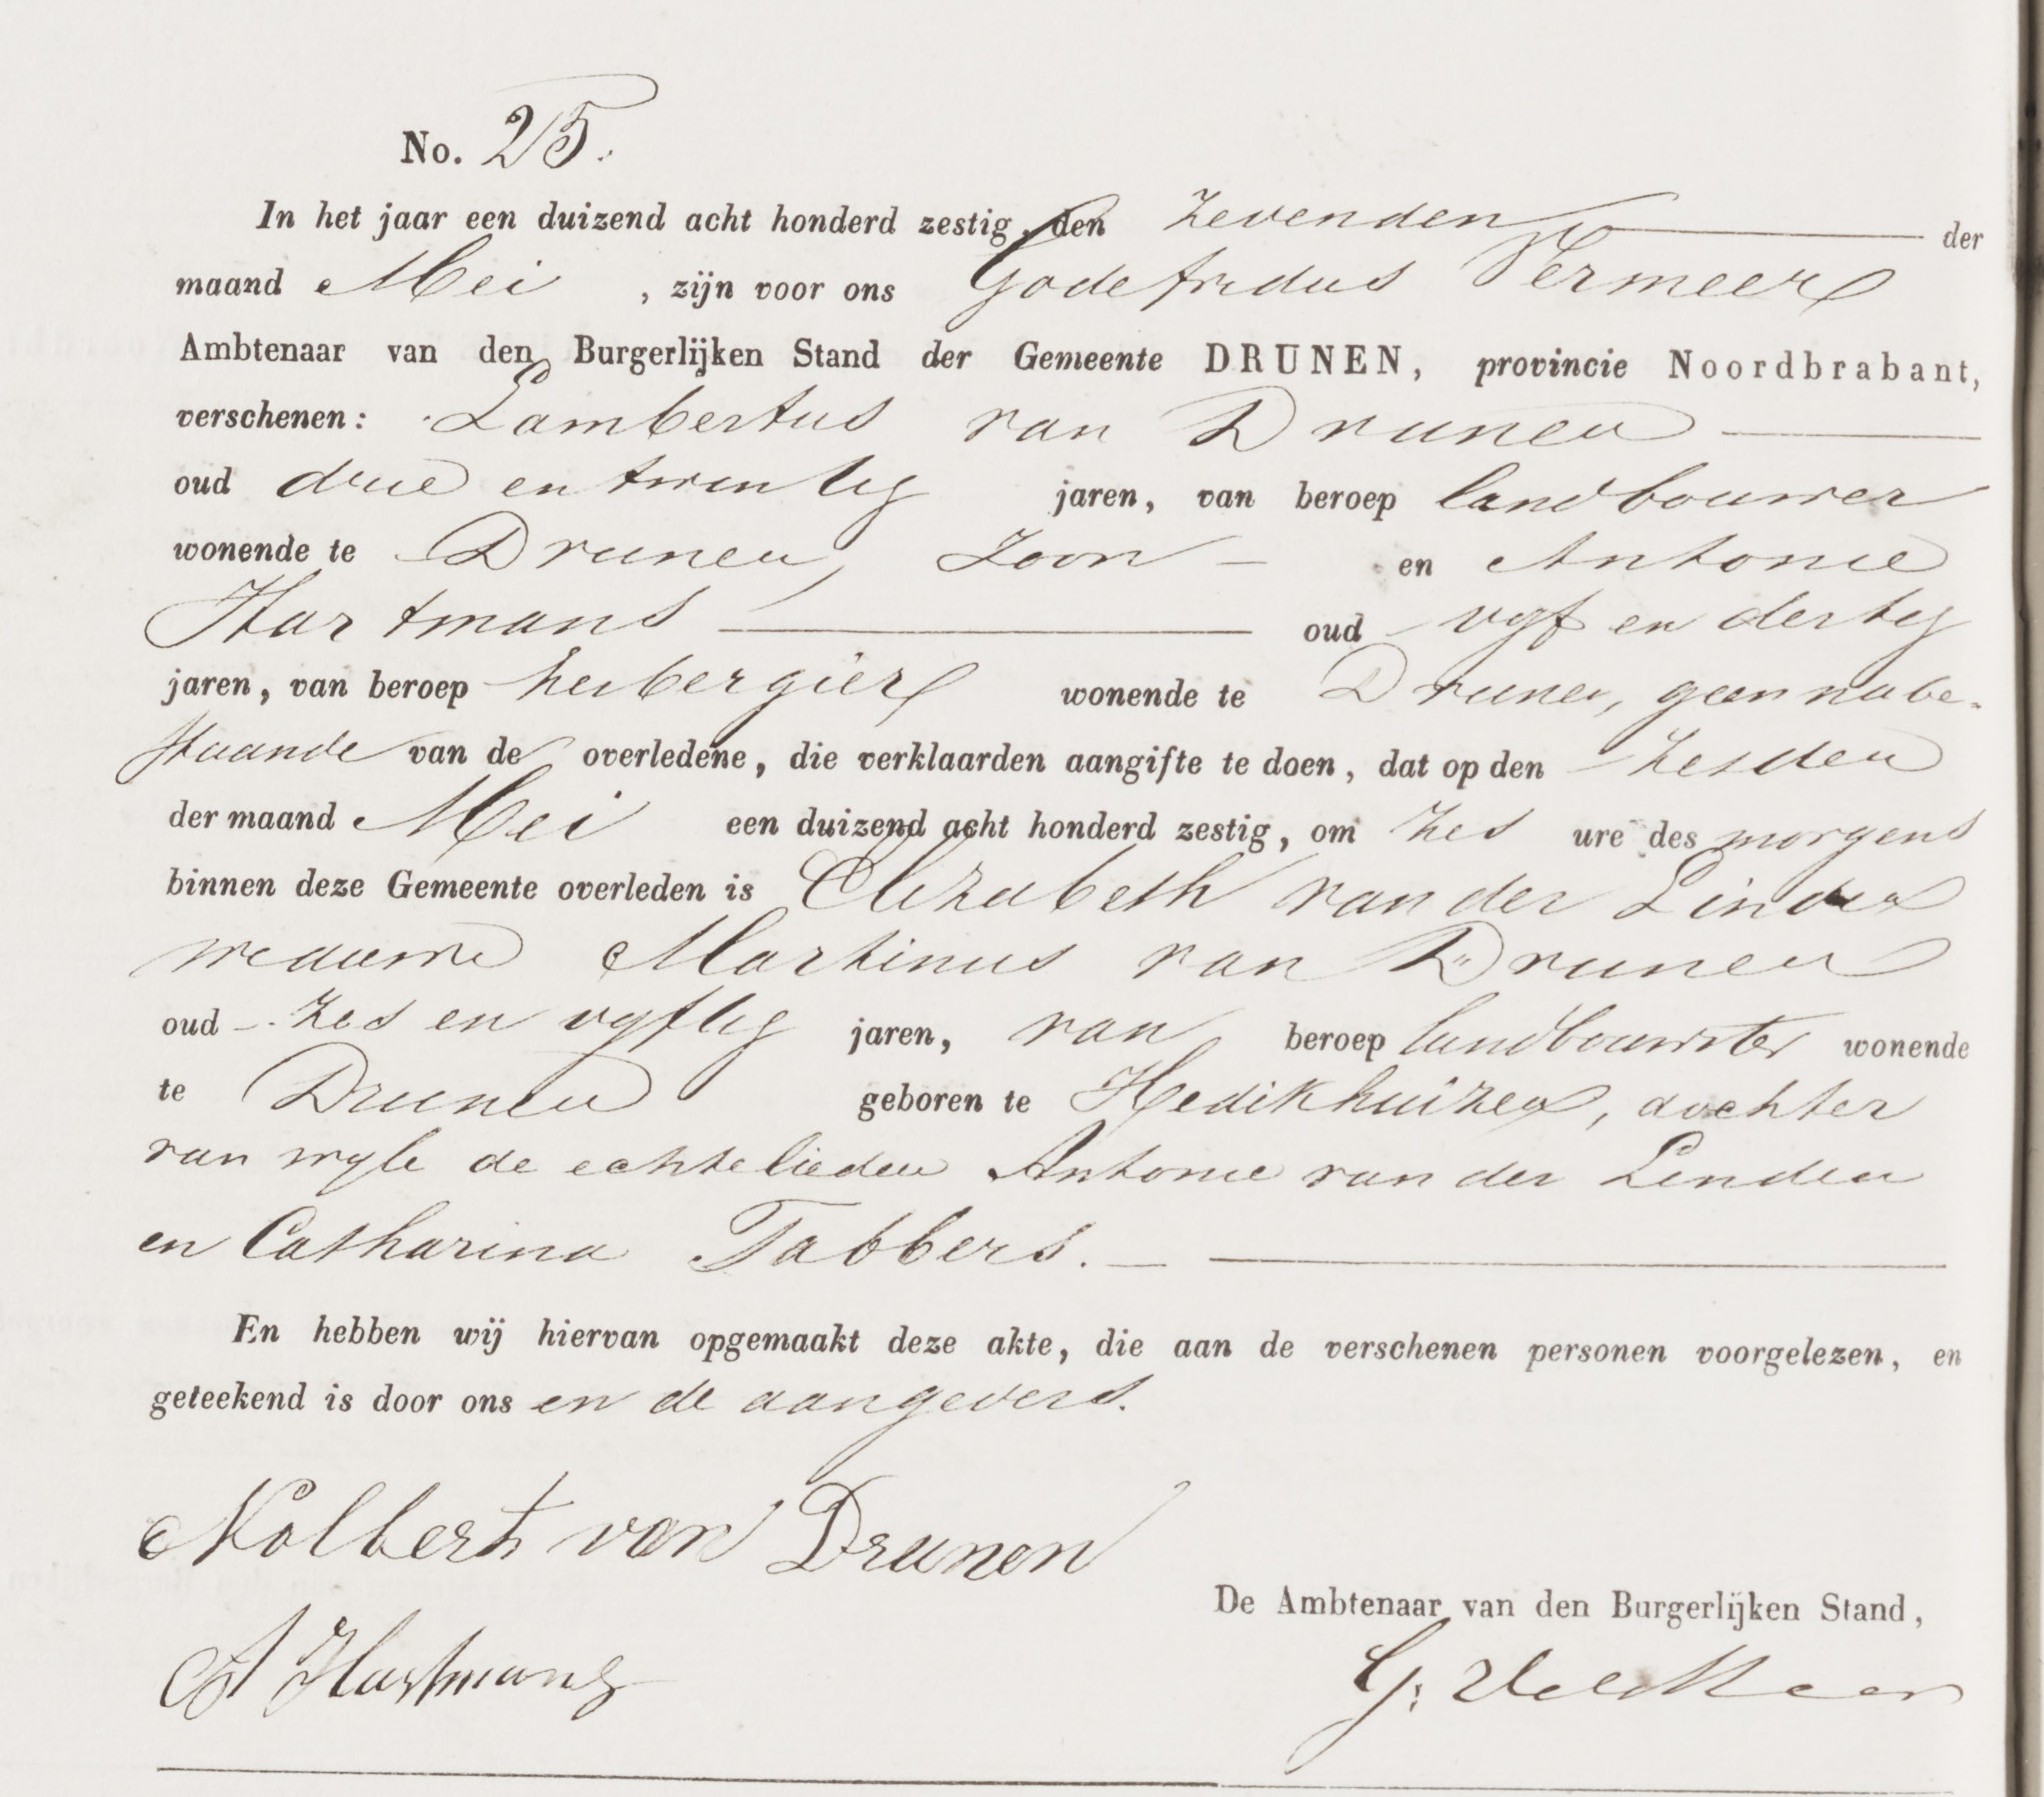 No. 25.
In het jaar een duizend acht honderd zestig, den zevenden der
maand Mei , zijn voor ons Godefridus Vermeer
Ambtenaar van den Burgerlijken Stand der Gemeente DRUNEN, provincie Noordbrabant,
verschenen: Lambertus van Drunen
oud drie en twintig jaren, van beroep landbouwer
wonende te Drunen, Zoon - en Antonie
Hartmans oud vyf en dertig
jaren, van beroep herbergier wonende te Drunen, geen nabe-
staande van de overledene, die verklaarden aangifte te doen, dat op den zesden
der maand Mei een duizend acht honderd zestig, om zes ure des morgens
binnen deze Gemeente overleden is Elizabeth van der Linden
weduwe Martinus van Drunen
oud zes en vyftig jaren, van beroep landbouwster wonende
te Drunen geboren te Hedikhuizen, dochter
van wyle de echtelieden Antonie van der Linden
en Catharina Tabbers.
En hebben wij hiervan opgemaakt deze akte, die aan de verschenen personen voorgelezen, en
geteekend is door ons en de aangevers.
Nolbert van Drunen
De Ambtenaar van den Burgerlijken Stand,
A Hartmans
G. VerMeer